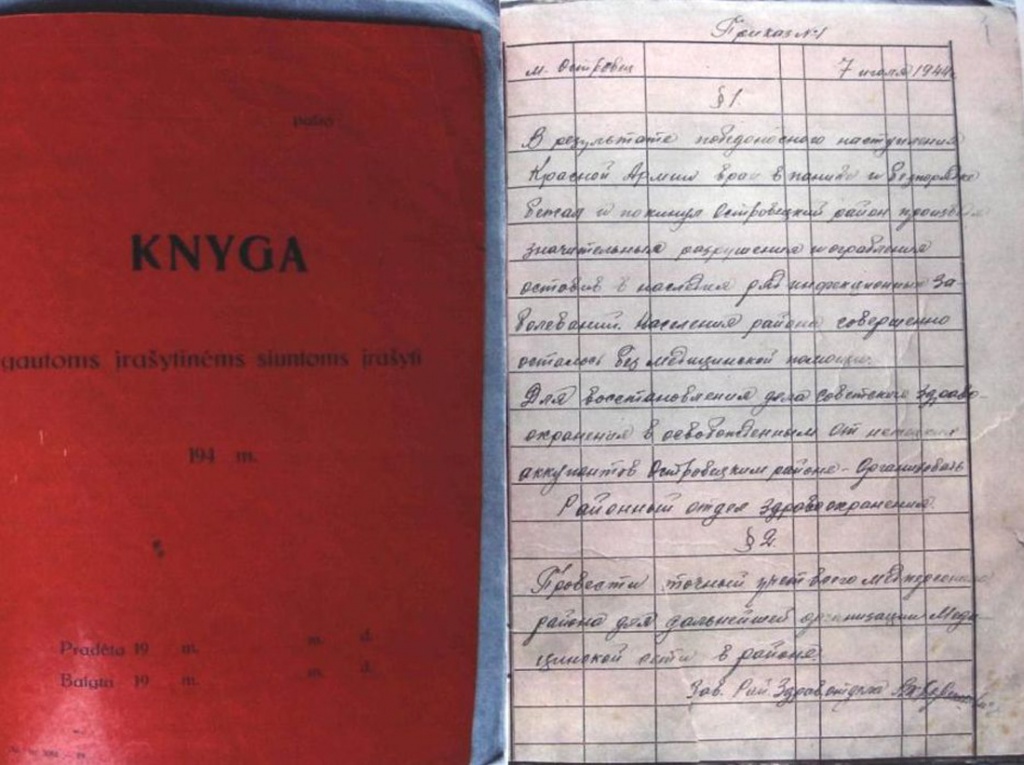 pašto
KNYGA
gautoms įrašytinėms siuntoms įrašyti
194 m.
Pradėta 19 m. m. d.
Baigta 19 m. m. d.
Приказ №1
м. Островец 7 июля 1944г.
§1.
В результате победоносного наступления
Красной Армии враг в панике и беспорядке
бежал и покинул Островецкий район произведя
значительные разрушения и ограбления
оставив в наследия ряд инфекционных за
болеваний. Населения района совершенно
осталось без медицинской помощи.
Для восстановления дела советского здраво-
охранения в освобожденным от немецких
аккупантов Островецким районе - Организовать
Районный отдел здравоохранения.
§2.
Провести точный учет всего медперсонала
района для дальнейшей организации меди
цинской сети в районе.
Зав. Рай. Здравотдела